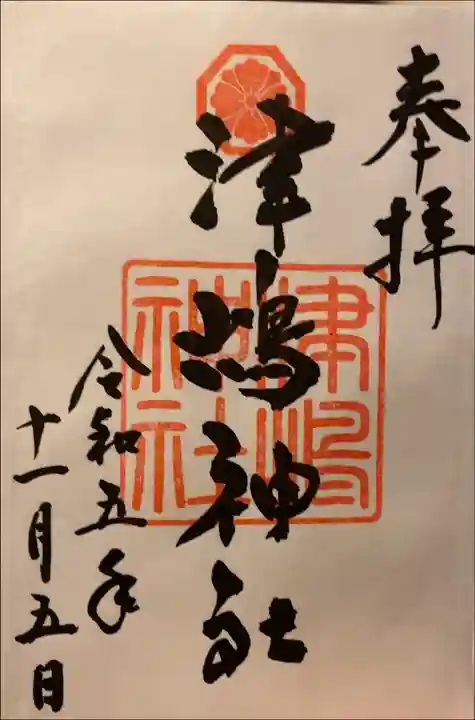 奉拝
津嶋神社
津嶋神社
令和五年
十一月五日